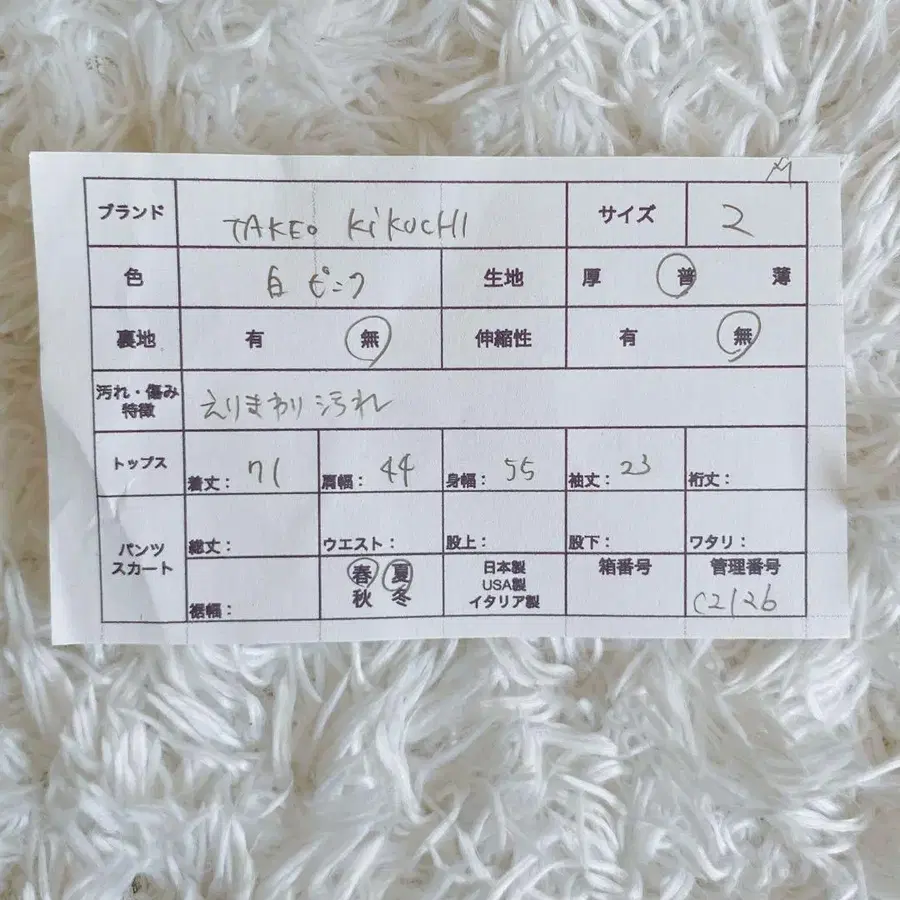 M
ブランド TAKEO KiKUCHI サイズ 2
色 白 ピンク 生地 厚 普 薄
裏地 有 無 伸縮性 有 無
汚れ・傷み
特徴 えりまわり汚れ
トップス 着丈: 71 肩幅: 44 身幅: 55 袖丈: 23 裄丈:
パンツ
スカート 総丈: ウエスト: 股上: 股下: ワタリ:
裾幅: 春 夏
秋 冬
日本製
USA製
イタリア製
箱番号
管理番号
C2126